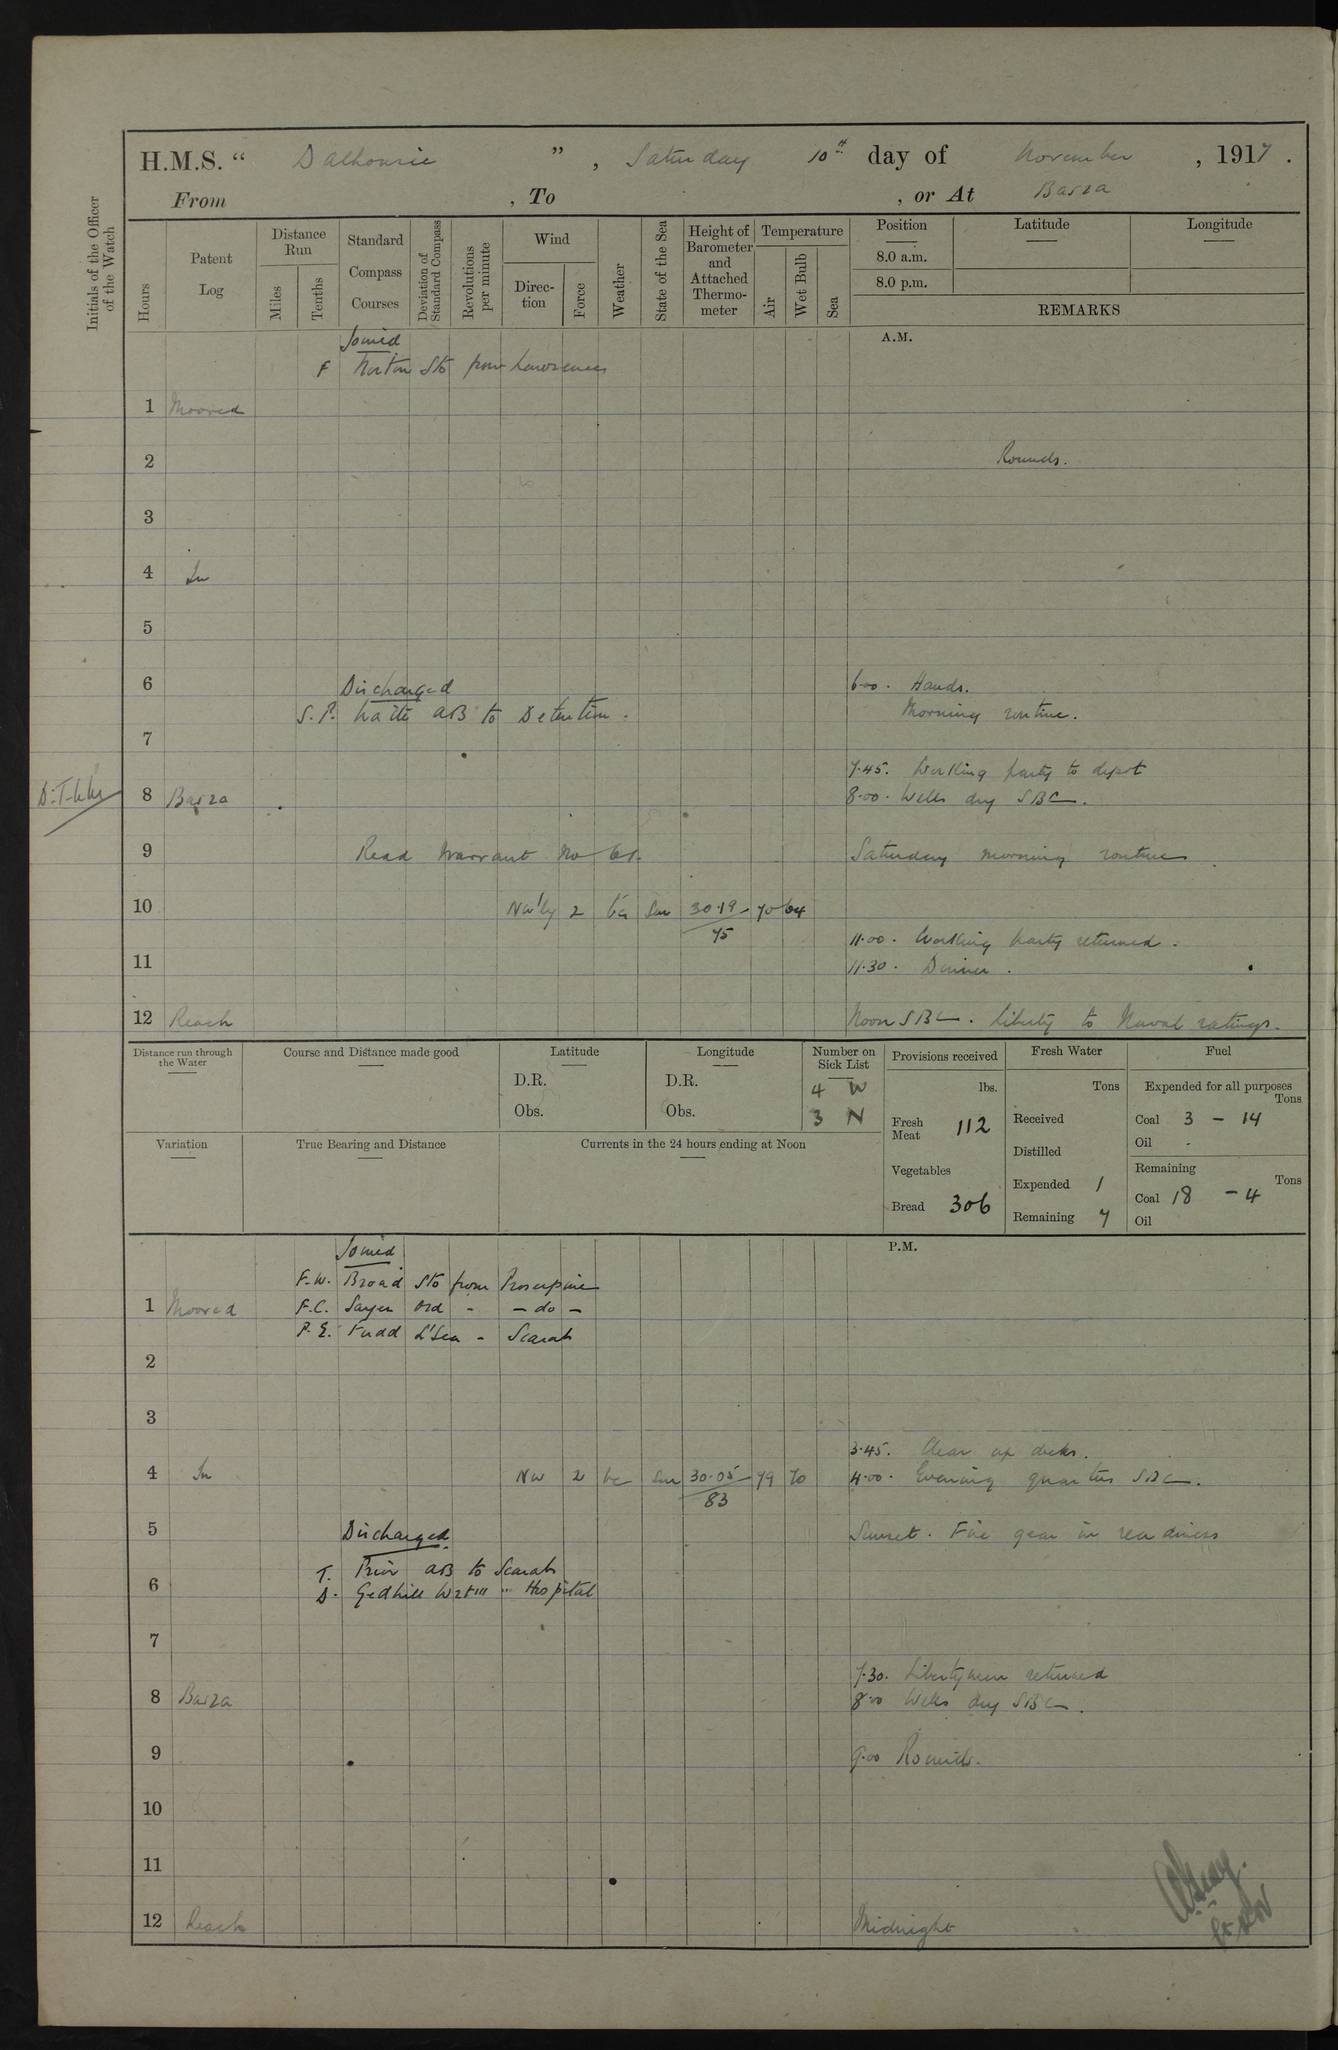 H.M.S. “ Dalhousie ” , Saturday 10th day of November , 1917 .
From , To , or At Basra
Initials of the Officer of the Watch
Hours
Patent Log
Distance Run
Miles
Tenths
Standard Compass Courses
Deviation of Standard Compass
Revolutions per minute
Wind
Direction
Force
Weather
State of the Sea
Height of Barometer and Attached Thermometer
Temperature
Air
Wet Bulb
Sea
Position
8.0 a.m.
8.0 p.m.
Latitude
Longitude
REMARKS
A.M.
Joined
F Norton Sto from Lawrence
1 Moored
2 Rounds.
3
4 In
5
6 Discharged 6.00. Hands.
S.P. Waite AB to Detention. Morning routine.
7
7.45. Working party to depot
8 Basra 8.00. Wells dry SBC.
9 Read Warrant No 61. Saturday morning routine
10 NW'ly 2 bc Sm 30.19 70 64
75
11.00. Working party returned.
11 11.30. Dinner.
12 Reach Noon SBC. Liberty to Naval ratings.
Distance run through the Water
Course and Distance made good
Latitude
D.R.
Obs.
Longitude
D.R.
Obs.
Number on Sick List
4 W
3 N
Provisions received
lbs.
Fresh Meat 112
Vegetables
Bread 306
Fresh Water
Tons
Received
Distilled
Expended 1
Remaining 7
Fuel
Expended for all purposes
Tons
Coal 3 - 14
Oil -
Remaining
Tons
Coal 18 - 4
Oil
Variation
True Bearing and Distance
Currents in the 24 hours ending at Noon
P.M.
Joined
F.W. Broad Sto from Proserpine
1 Moored F.C. Sayer Ord - - do -
P.E. Tudd L'Sea - Scarab
2
3
3.45. Clear up decks.
4 In NW 2 bc Sm 30.05 79 70 4.00. Evening quarters SBC.
83
5 Discharged Sunset. Fire gear in readiness
T. Prior AB to Scarab
6 D. Gedhill " Hospital
7
7.30. Libertymen returned
8 Basra 8.00 Wells dry SBC.
9 9.00 Rounds.
10
11
12 Reach Midnight